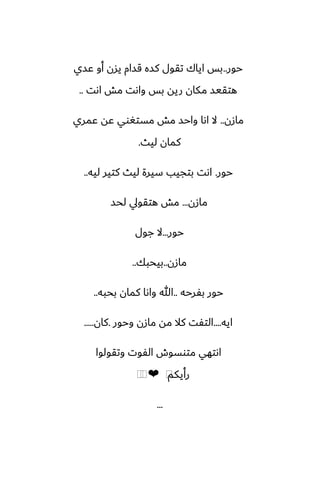 حور..بس اياك تقول كده قدام يزن أو عدي
هتقعد مكان رين بس وانت مش انت ..
مازن.. لا انا واحد مش مستغني عن عمري
كمان ليث.
حور. انت بتجيب سيرة ليث كتير ليه..
مازن... مش هتقولي لحد
حور...لا جول
مازن..بيحبك..
حور بفرحه ..الله وانا كمان بحبه..
ايه....التفت كلا من مازن وحور .كان.....
انتهي متنسوش الفوت وتقولوا
رأيكم ❤
...